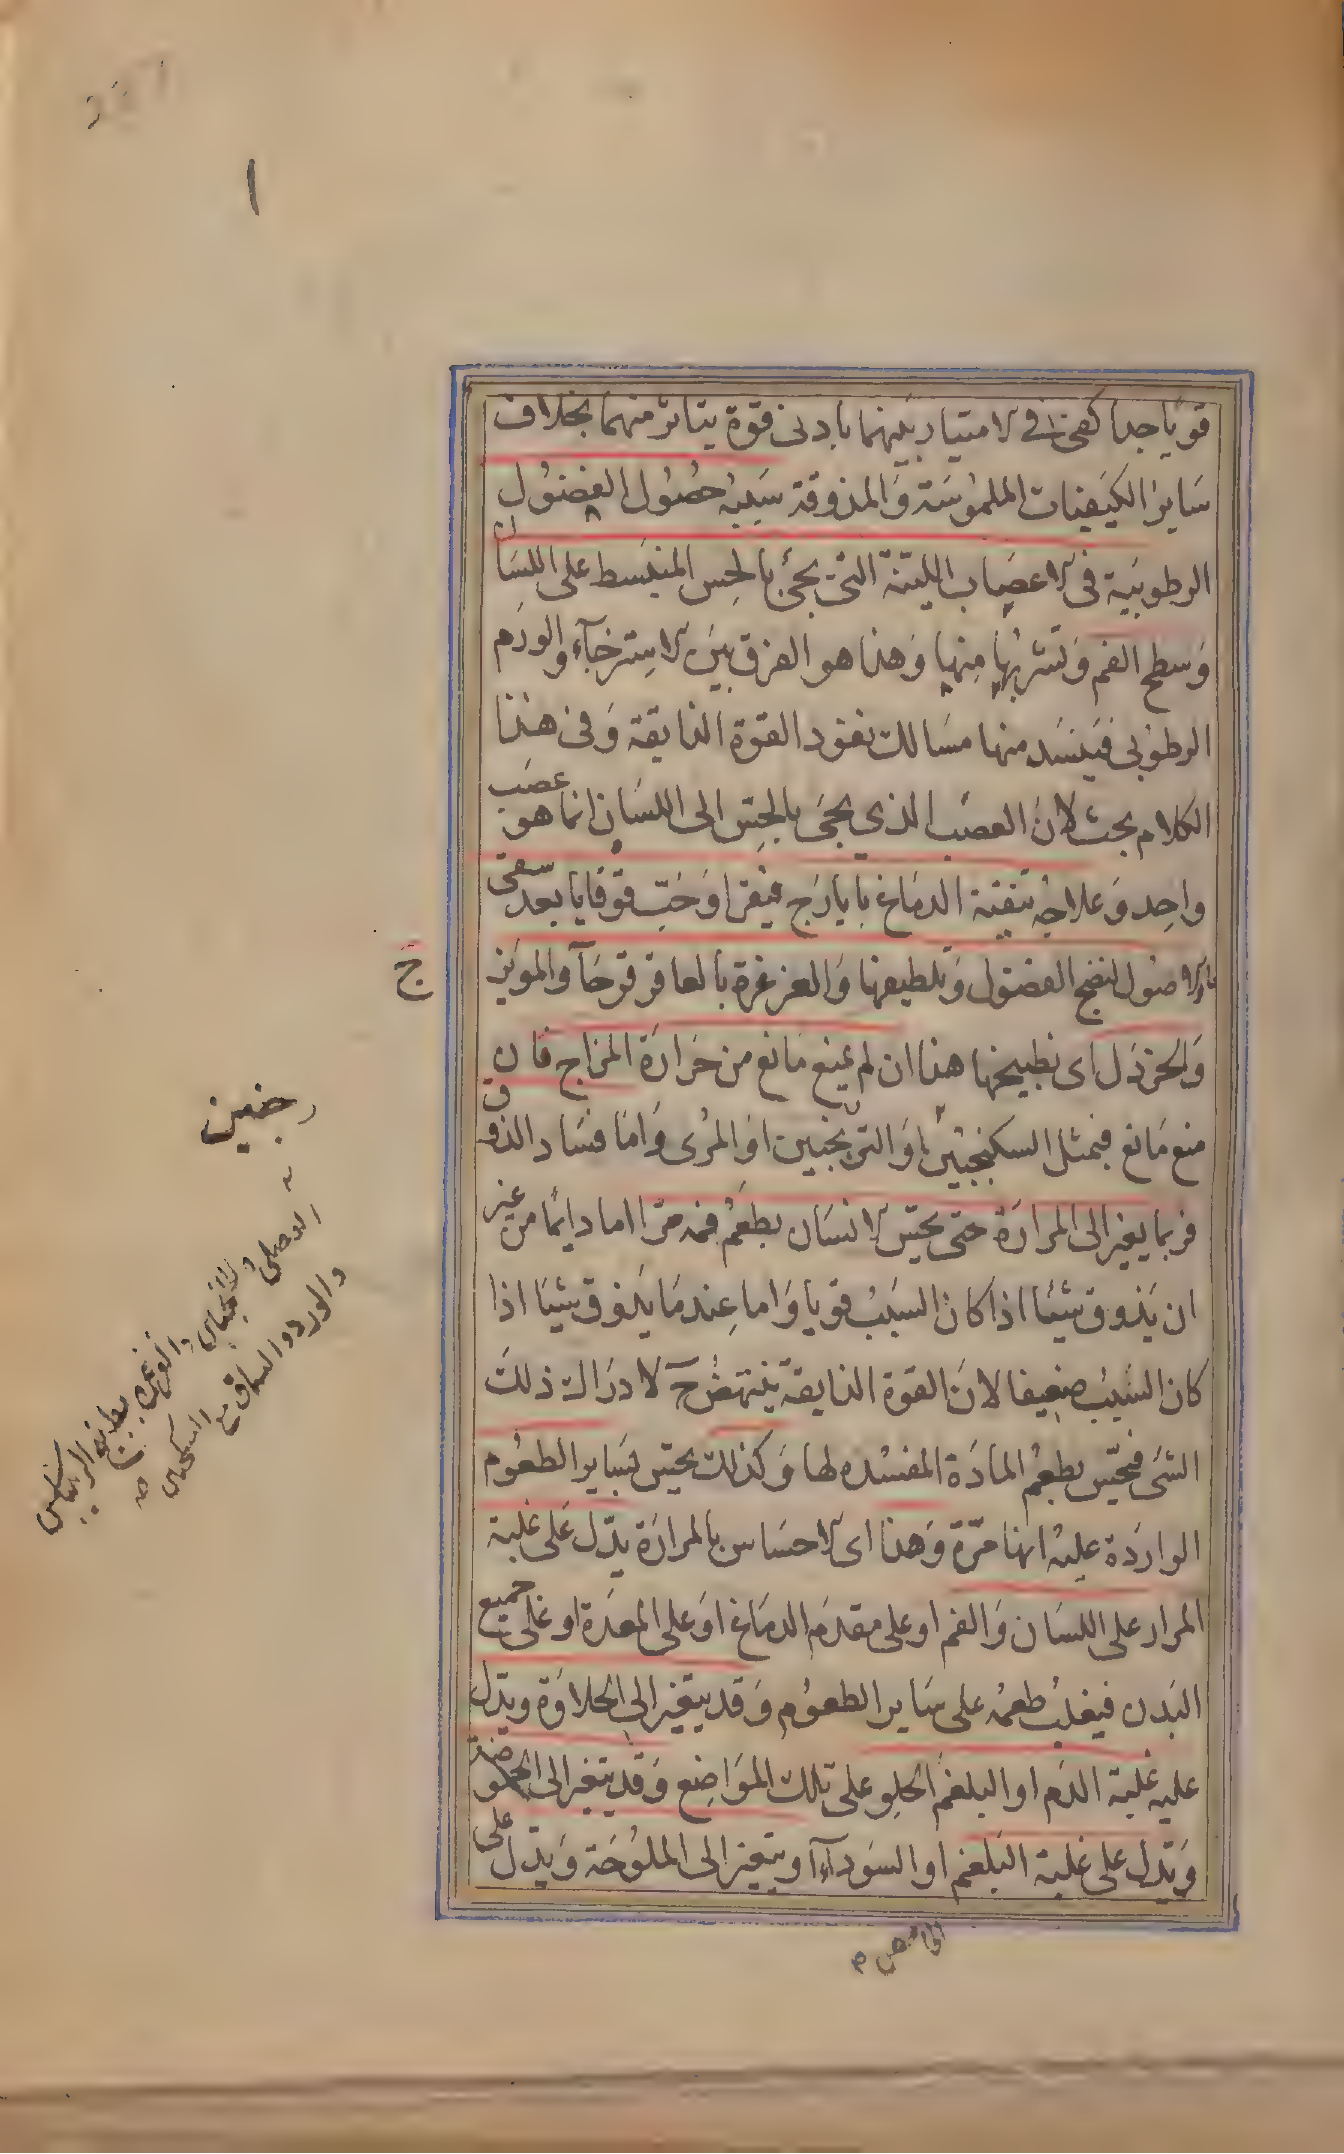 قويا جدا كفى فى الامتياز بينهما بادنى قوة يتاثر منهما بخلاف
ساير الكيفيات الملموسة والمذوقة سببه حصول الفضول
الرطوبية فى الاعصاب اللينة التى تجئ بالحس المنبسط على اللسان
وسطح الفم وتشربها منها وهذا هو الفرق بين الاسترخاء والورم
الرطوبى فينسد منها مسالك نفوذ القوة الذايقة وفى هذا
الكلام بحث لان العصب الذي يجئ بالحس الى اللسان انما هو عصب
واحد وعلاجه تنقية الدماغ بايارج فيقرا وحب قوقايا بعد سقى
ماء الاصول لنضج الفضول وتلطيفها والغرغرة بالعاقرقرحا والمويزج
والخردل اى بطبيخها هذا ان لم يمنع مانع من حرارة المزاج فان
منع مانع فبمثل السكنجبين او الترنجبين او المرى واما فساد الذوق
فربما يغير الى المرارة حتى يحس الانسان بطعم فمه مرا اما دايما من غير
ان يذوق شيئا اذا كان السبب قويا واما عند ما يذوق شيئا اذا
كان السبب ضعيفا لان القوة الذايقة ينتهض ح لادراك ذلك
الشئ فيحس بطعم المادة المفسده لها وكذلك يحس بساير الطعوم
الواردة عليه انها مرة وهذا اى الاحساس بالمرارة يدل على غلبة
المرار على اللسان والفم او على مقدم الدماغ او على المعدة او على جميع
البدن فيغلب طعمه على ساير الطعوم وقد يتغير الى الحلاوة ويدل
عليه غلبة الدم او البلغم الحلو على تلك المواضع وقد يتغير الى الحموضة
ويدل على غلبة البلغم او السوداء او يتغير الى الملوحة ويدل على
الحامض م
رجنبين
والغرغرة بطبيخ الريباس
والورد والسماق مع السكنجبين